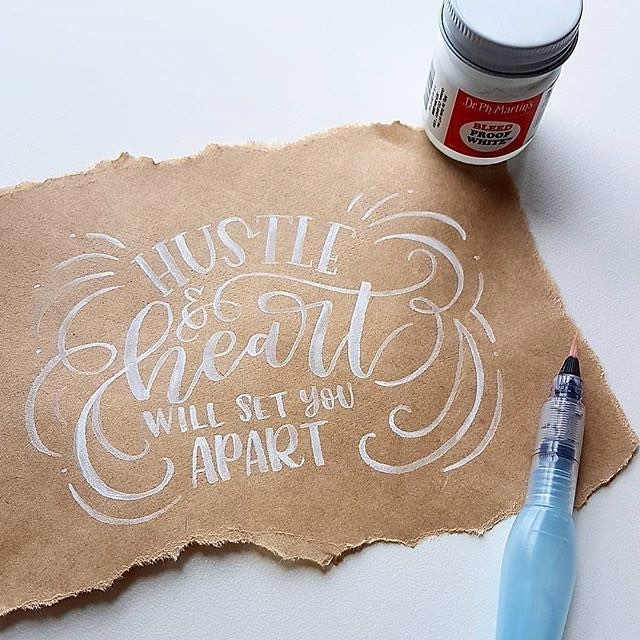 Dr. Ph. Martin's
BLEED
PROOF
WHITE
HUSTLE
&
heart
WILL SET YOU
APART